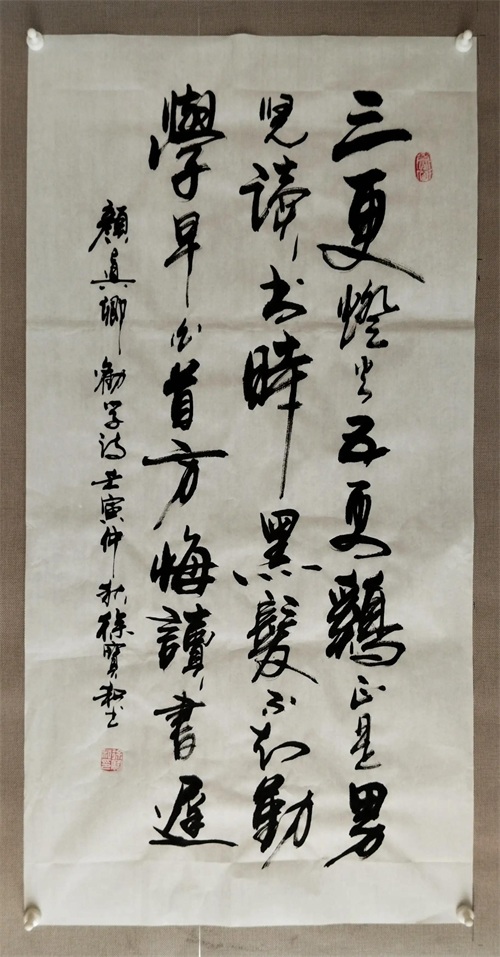 三更燈火五更鷄正是男
児讀書時黑髮不知勤
學早白首方悔讀書遲
顏真卿勸学诗壬寅仲秋徐寶